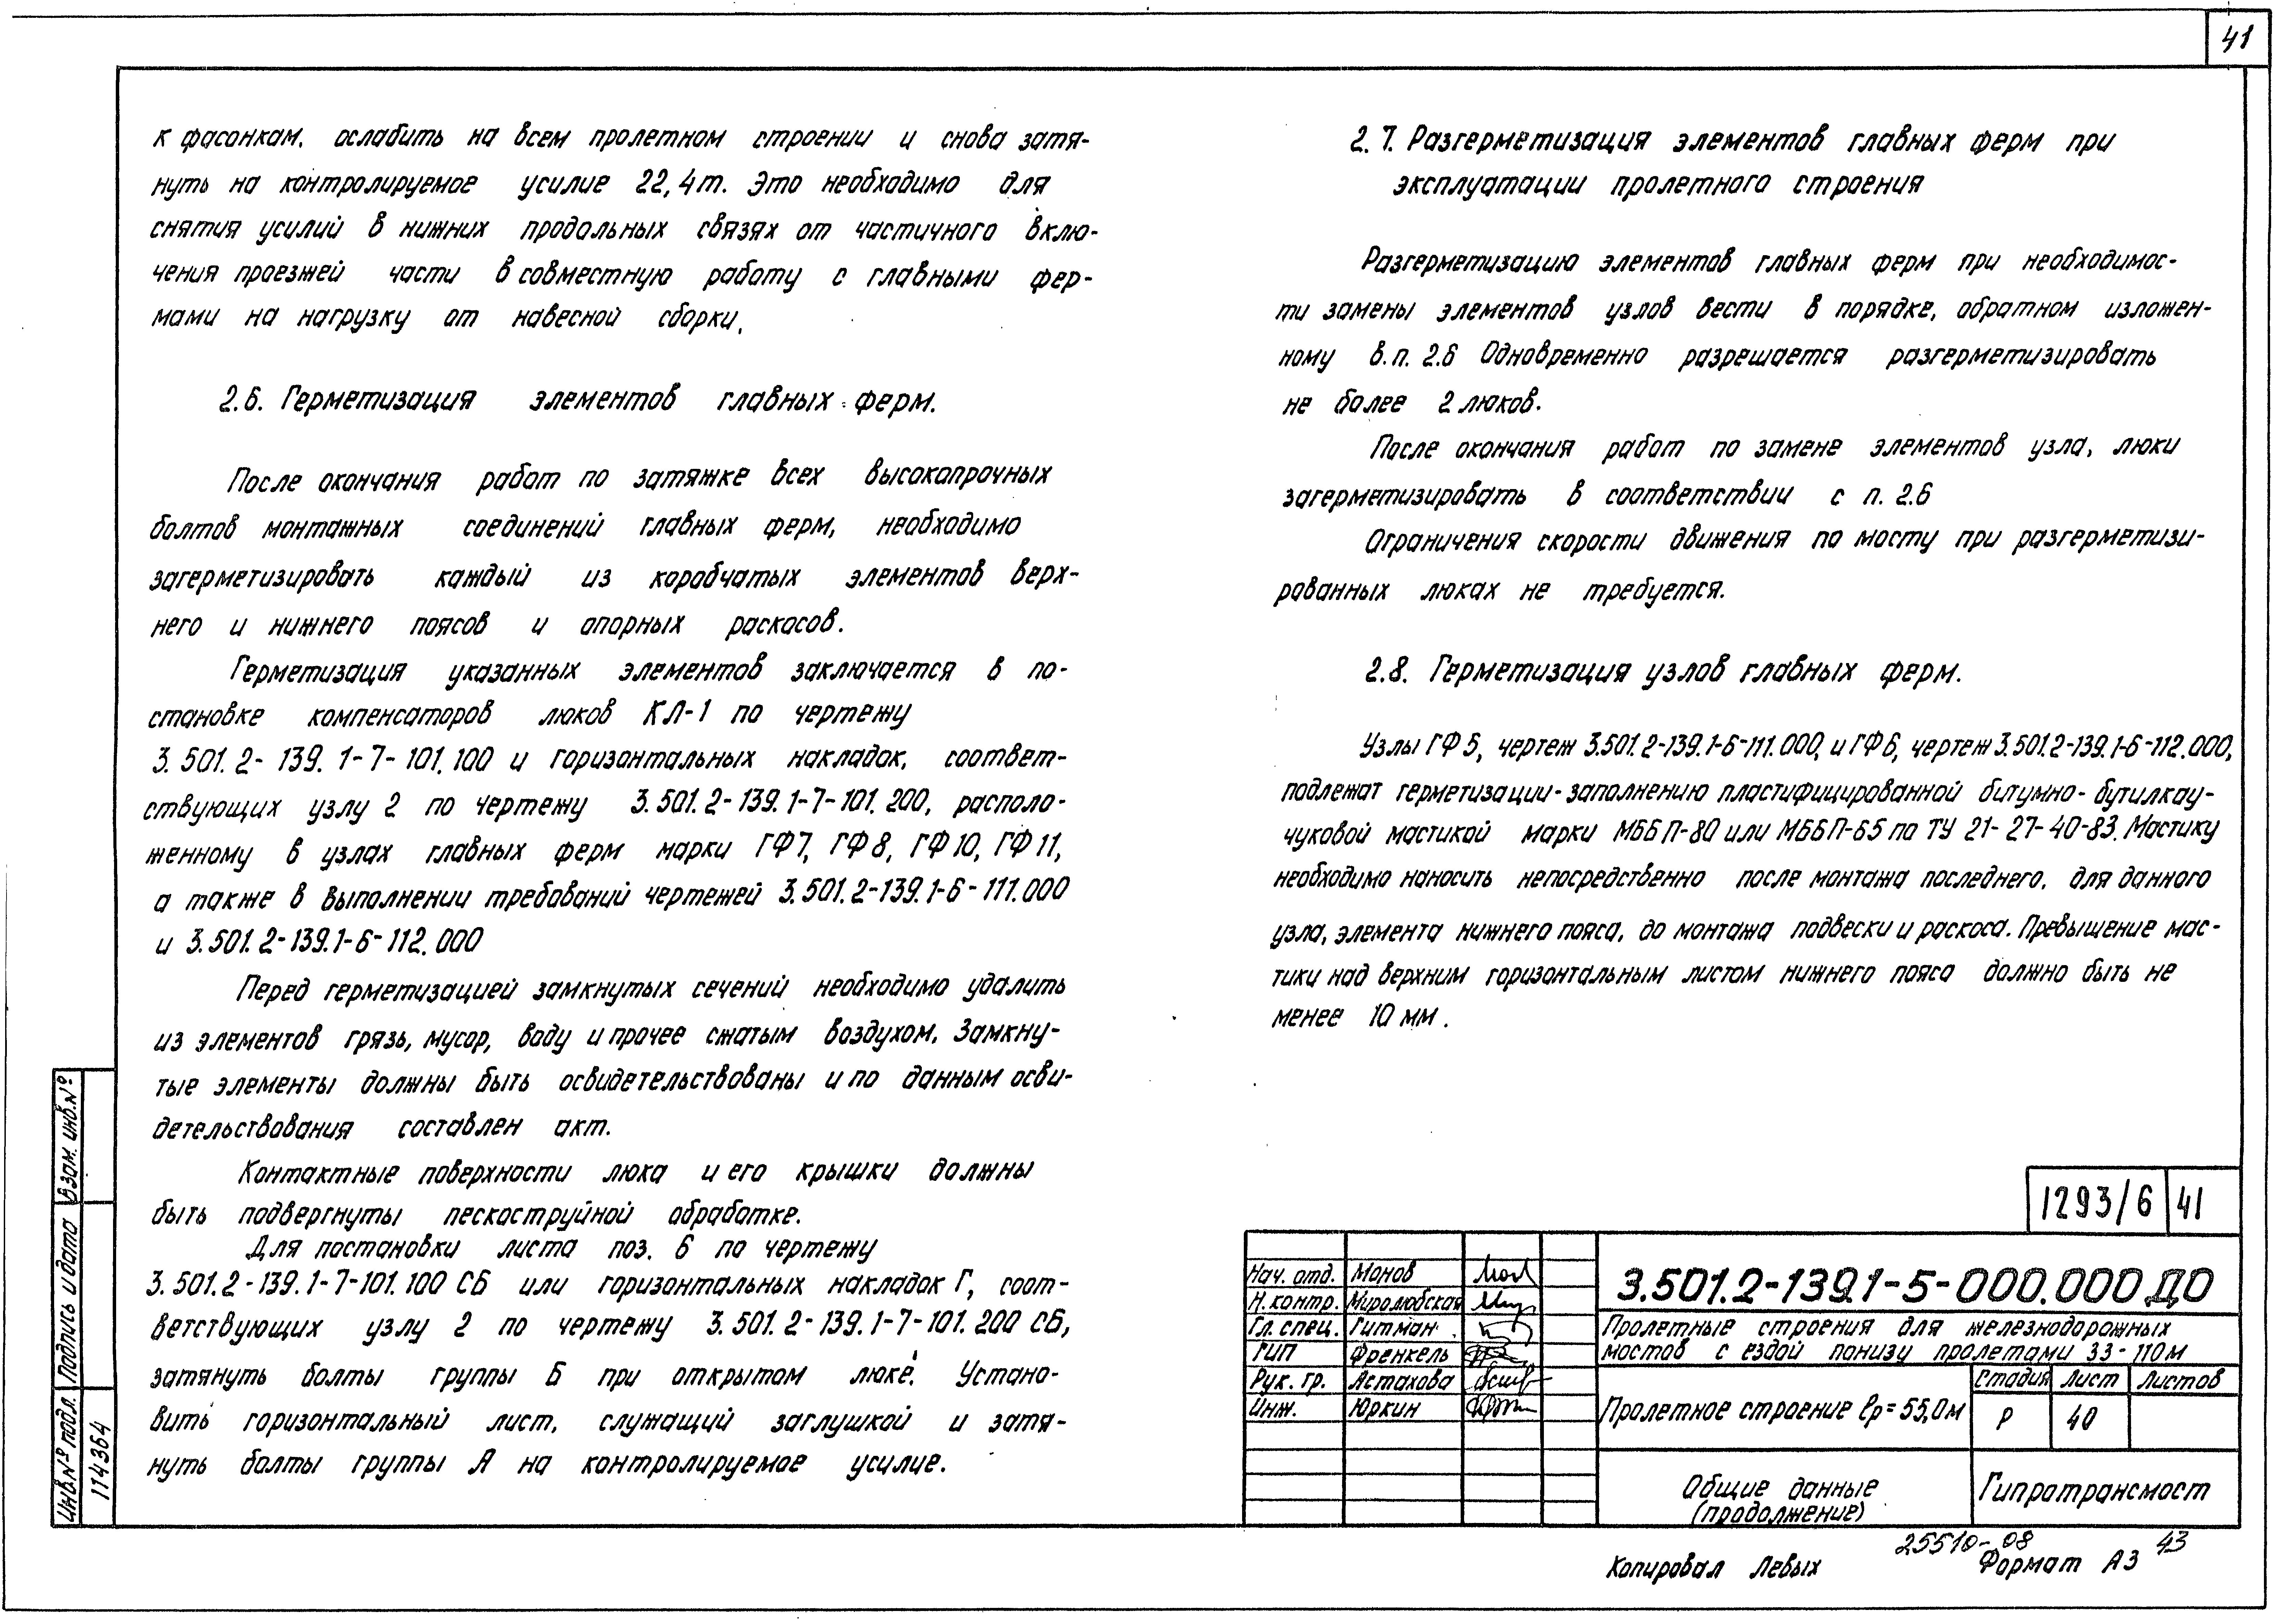 41
к фасонкам. ослабить на всем пролетном строении и снова затя-
нуть на контролируемое усилие 22,4т. Это необходимо для
снятия усилий в нижних продольных связях от частичного вклю-
чения проезжей части в совместную работу с главными фер-
мами на нагрузку от навесной сборки.
2.6. Герметизация элементов главных ферм.
После окончания работ по затяжке всех высокопрочных
болтов монтажных соединений главных ферм, необходимо
загерметизировать каждый из коробчатых элементов верх-
него и нижнего поясов и опорных раскосов.
Герметизация указанных элементов заключается в по-
становке компенсаторов люков КЛ-1 по чертежу
3.501.2-139.1-7-101.100 и горизонтальных накладок, соответ-
ствующих узлу 2 по чертежу 3.501.2-139.1-7-101.200, располо-
женному в узлах главных ферм марки ГФ7, ГФ8, ГФ10, ГФ11,
а также в выполнении требований чертежей 3.501.2-139.1-6-111.000
и 3.501.2-139.1-6-112.000
Перед герметизацией замкнутых сечений необходимо удалить
из элементов грязь, мусор, воду и прочее сжатым воздухом. Замкну-
тые элементы должны быть освидетельствованы и по данным осви-
детельствования составлен акт.
Контактные поверхности люка и его крышки должны
быть подвергнуты пескоструйной обработке.
Для постановки листа поз. 6 по чертежу
3.501.2-139.1-7-101.100 СБ или горизонтальных накладок Г, соот-
ветствующих узлу 2 по чертежу 3.501.2-139.1-7-101.200 СБ,
затянуть болты группы Б при открытом люке. Устано-
вить горизонтальный лист, служащий заглушкой и затя-
нуть болты группы А на контролируемое усилие.
2.7. Разгерметизация элементов главных ферм при
эксплуатации пролетного строения
Разгерметизацию элементов главных ферм при необходимос-
ти замены элементов узлов вести в порядке, обратном изложен-
ному в.п. 2.6 Одновременно разрешается разгерметизировать
не более 2 люков.
После окончания работ по замене элементов узла, люки
загерметизировать в соответствии с п. 2.6
Ограничения скорости движения по мосту при разгерметизи-
рованных люках не требуется.
2.8. Герметизация узлов главных ферм.
Узлы ГФ5, чертеж 3.501.2-139.1-6-111.000, и ГФ6, чертеж 3.501.2-139.1-6-112.000,
подлежат герметизации-заполнению пластифицированной битумно-бутилкау-
чуковой мастикой марки МББП-80 или МББП-65 по ТУ 21-27-40-83. Мастику
необходимо наносить непосредственно после монтажа последнего. для данного
узла, элемента нижнего пояса, до монтажа подвески и раскоса. Превышение мас-
тики над верхним горизонтальным листом нижнего пояса должно быть не
менее 10 мм.
1293/6 41
Нач. отд. Монов
Н. контр. Миролюбская
Гл. спец. Гитман
ГИП Френкель
Рук. гр. Астахова
Инж. Юркин
3.501.2-139.1-5-000.000 ДО
Пролетные строения для железнодорожных
мостов с ездой понизу пролетами 33-110м
Пролетное строение lр=55,0м
Стадия Лист Листов
Р 40
Общие данные
(продолжение)
Гипротрансмост
25510-08 43
Копировал Левых Формат А3
Взам. инв.№
Подпись и дата
Инв.№ подл.
114364